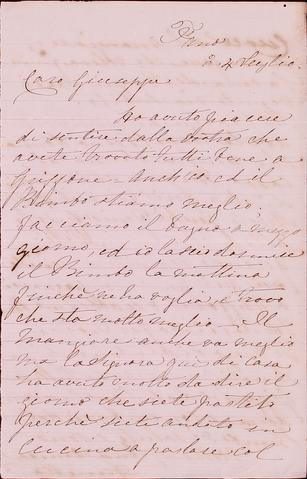 Fano
2 4 Luglio.
Caro Giuseppe
Ho avuto piacere
di sentire dalla vostra che
avete trovato tutti bene a
Griffone. Anch'io ed il
Bimbo stiamo meglio;
facciamo il bagno a mezzo
giorno, ed io lascio dormire
il Bimbo la mattina
finchè ne ha voglia, e trovo
che sta molto meglio. Il
mangiare anche va meglio
ma la signora qui di casa
ha avuto molto da dire il
giorno che siete partito
perchè siete andato in
cucina a parlare col